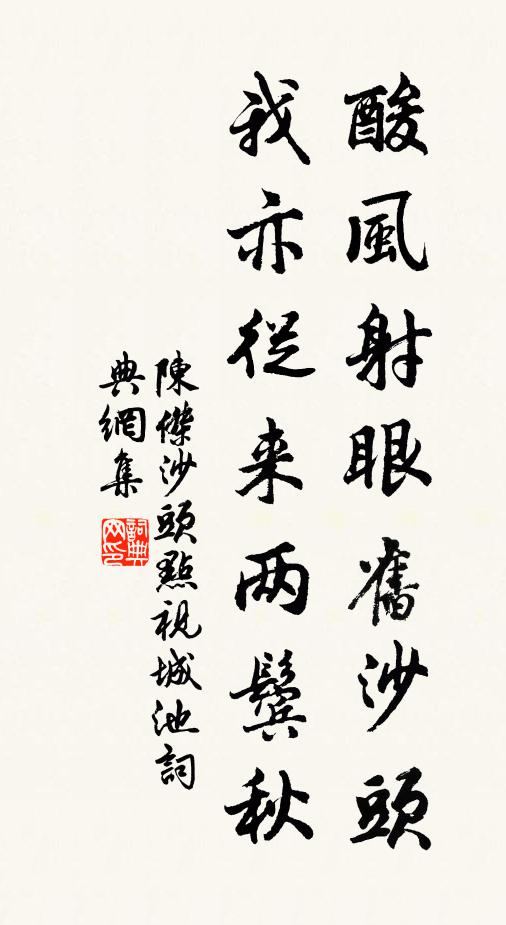 酸風射眼舊沙頭
我亦從来两鬢秋
陳傑沙頭點視城池詞
典網集
詞典網印